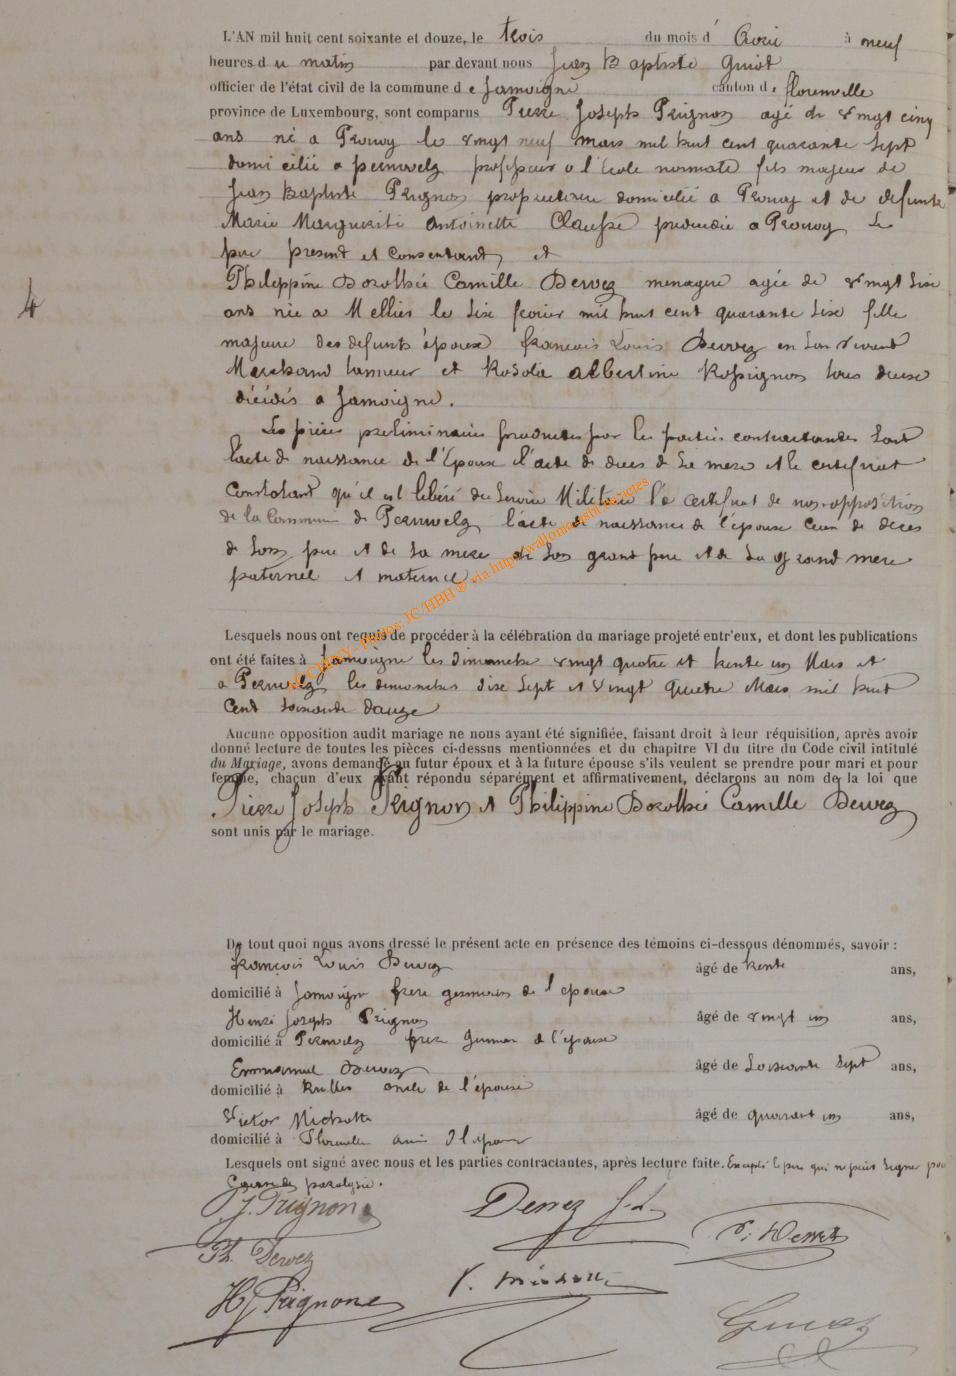 L'AN mil huit cent soixante et douze, le trois du mois d' Avril à neuf
heures du matin par devant nous Jean Baptiste Guiot
officier de l'état civil de la commune de Jamoigne canton de florenville
province de Luxembourg, sont comparus Pierre Joseph Prignon agé de vingt cinq
ans né a Prouvy le vingt neuf Mars mil huit cent quarante Sept
domicilié a peruwelz professeur a l'école normale fils majeur de
Jean Baptiste Prignon proprietaire domicilié a Prouvy et de defunte
Marie Marguerite Antoinette Clausse décédée a Prouvy Le
pere present et Consentant, et
Philippine Dorothée Camille Dewez menagere agée de vingt Six
ans née a Mellier le Six fevrier mil huit cent quarante Six fille
majeure des defunts époux francois Louis Dewez en Son vivant
Marchand tanneur et Rosalie Albertine Rossignon tous deux
décédés a Jamoigne.
Les pièces preliminaires produites par les parties contractantes Sont
l'acte de naissance de l'Epoux l'acte de deces de Sa mere et le certificat
Constatant qu'il est libéré du Service Militaire le certificat de non-opposition
de la Commune de Peruwelz, l'acte de naissance de l'épouse Ceux de deces
de Son pere et de Sa mere de Son grant pere et de Sa grand mere
paternel et maternel
4
Lesquels nous ont requis de procéder à la célébration du mariage projeté entr'eux, et dont les publications
ont été faites à Jamoigne les dimanches vingt quatre et trente un Mars et
a Peruwelz les dimanches dix Sept et vingt quatre Mars mil huit
Cent Soixante douze
Aucune opposition audit mariage ne nous ayant été signifiée, faisant droit à leur réquisition, après avoir
donné lecture de toutes les pièces ci-dessus mentionnées et du chapitre VI du titre du Code civil intitulé
du Mariage, avons demandé au futur époux et à la future épouse s'ils veulent se prendre pour mari et pour
femme, chacun d'eux ayant répondu séparément et affirmativement, déclarons au nom de la loi que
Pierre Joseph Prignon et Philippine Dorothée Camille Dewez
sont unis par le mariage.
De tout quoi nous avons dressé le présent acte en présence des témoins ci-dessous dénommés, savoir :
francois Louis Dewez âgé de trente ans,
domicilié à Jamoigne frere germain de l'epouse
Henri Joseph Prignon âgé de vingt un ans,
domicilié à Peruwelz frere germain de l'époux
Emmanuel Dewez âgé de Soixante Sept ans,
domicilié à Rulles oncle de l'épouse
Victor Michotte âgé de quarant un ans,
domicilié à Florenville ami de l'epoux
Lesquels ont signé avec nous et les parties contractantes, après lecture faite. Excepté le pere qui ne peut Signer pour
Cause de paralysie.
J. Prignon Dewez f. L.
Ph. Dewez
H J Prignon V.